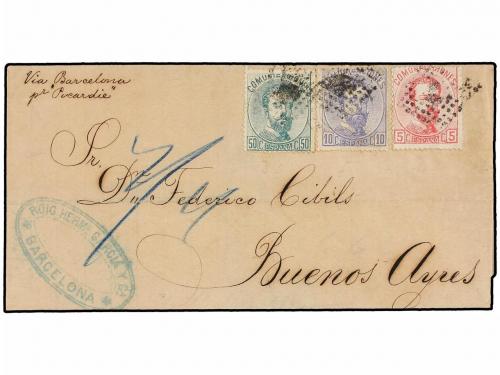 Via Barcelona
pr "Picardie"
COMUNICACIONES
50 ESPAÑA 50
COMUNICACIONES
10 ESPAÑA 10
COMUNICACIONES
5 ESPAÑA 5
Sr.
Dn Federico Cibils
Buenos Ayres
ROIG HERMS GARCIA Y Ca
BARCELONA